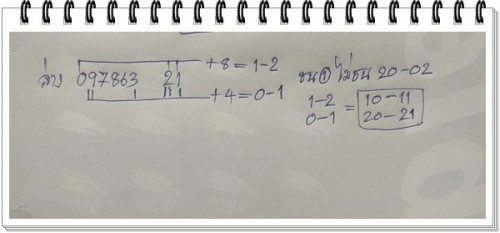 +8=1-2
ล่าง 097863 21
+4=0-1
ชน① ไม่ชน 20-02
1-2 = 10-11
0-1 20-21